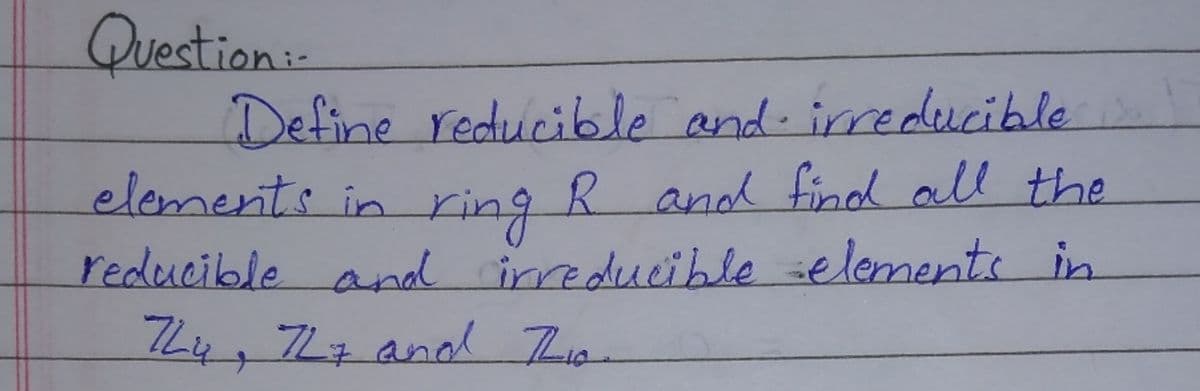 Question:-
Define reducible and irreducible
elements in ring R and find all the
reducible and irreducible elements in
ℤ₄, ℤ₇ and ℤ₁₀.